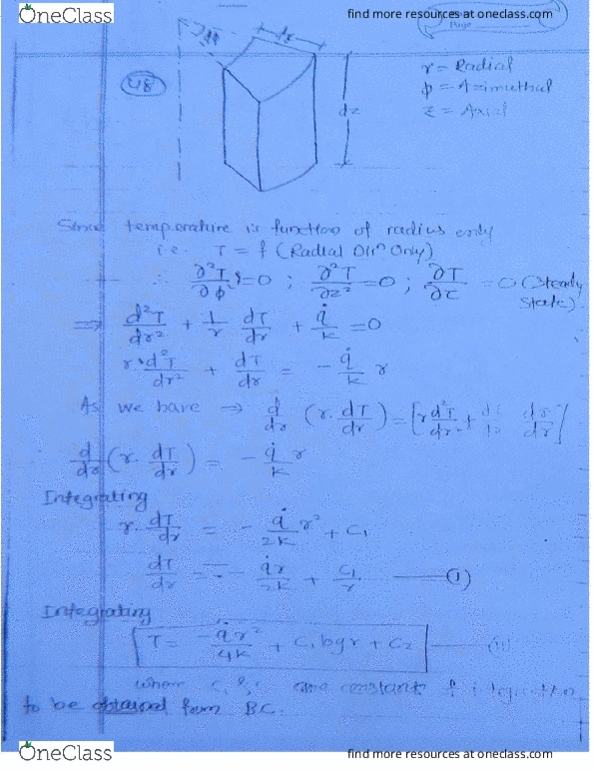 OneClass find more resources at oneclass.com
Page
dφ dr
48
dz
r = Radial
φ = Azimuthal
z = Axial
Since temperature is function of radius only
i.e. T = f (Radial Dirⁿ Only)
∴ ∂²T/∂φ² = 0 ; ∂²T/∂z² = 0 ; ∂T/∂τ = 0 (Steady State)
⇒ d²T/dr² + 1/r dT/dr + q̇/k = 0
r·d²T/dr² + dT/dr = - q̇/k r
As we have ⇒ d/dr (r·dT/dr) = [r d²T/dr² + dT/dr dr/dr]
d/dr (r·dT/dr) = - q̇/k r
Integrating
r·dT/dr = - q̇/2k r² + C₁
dT/dr = - q̇r/2k + C₁/r —(i)
Integrating
T = -q̇r²/4k + C₁ log r + C₂ —(ii)
where C₁ & are constants of integration
to be obtained form B.C.
OneClass find more resources at oneclass.com